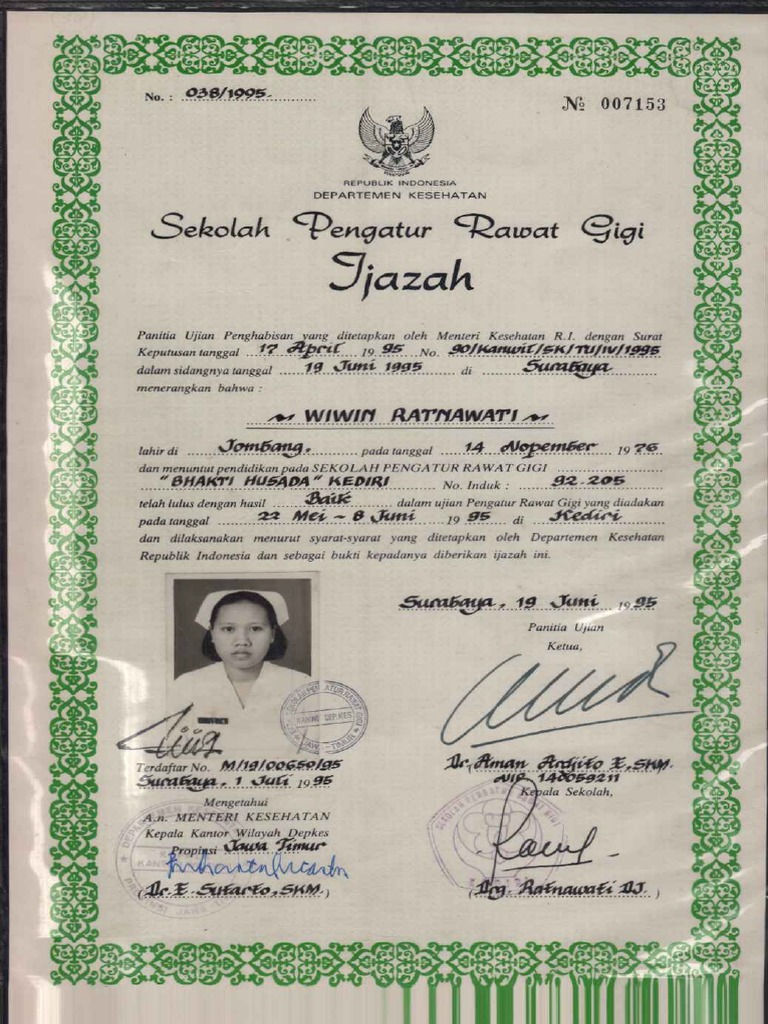 No. : 038/1995.
No 007153
REPUBLIK INDONESIA
DEPARTEMEN KESEHATAN
Sekolah Pengatur Rawat Gigi
Ijazah
Panitia Ujian Penghabisan yang ditetapkan oleh Menteri Kesehatan R.I. dengan Surat
Keputusan tanggal 17 April 1995 No. 90/Kanwil/SK/TU/IV/1995
dalam sidangnya tanggal 19 Juni 1995 di Surabaya
menerangkan bahwa :
WIWIN RATNAWATI
lahir di Jombang. pada tanggal 14 Nopember 1976
dan menuntut pendidikan pada SEKOLAH PENGATUR RAWAT GIGI
"BHAKTI HUSADA" KEDIRI No. Induk : 92.205
telah lulus dengan hasil Baik dalam ujian Pengatur Rawat Gigi yang diadakan
pada tanggal 22 Mei - 8 Juni 1995 di Kediri
dan dilaksanakan menurut syarat-syarat yang ditetapkan oleh Departemen Kesehatan
Republik Indonesia dan sebagai bukti kepadanya diberikan ijazah ini.
Surabaya, 19 Juni 1995
Panitia Ujian
Ketua,
Dr. Aman Ardjito E, SKM.
NIP. 140059211
Kepala Sekolah,
(Drg. Ratnawati DJ.)
KANWIL DEP.KES
JAWA TIMUR
Terdaftar No. M/19/00650/95
Surabaya, 1 Juli 1995
Mengetahui
A.n. MENTERI KESEHATAN
Kepala Kantor Wilayah Depkes
Propinsi Jawa Timur
(Dr. E. Sutarto, SKM.)